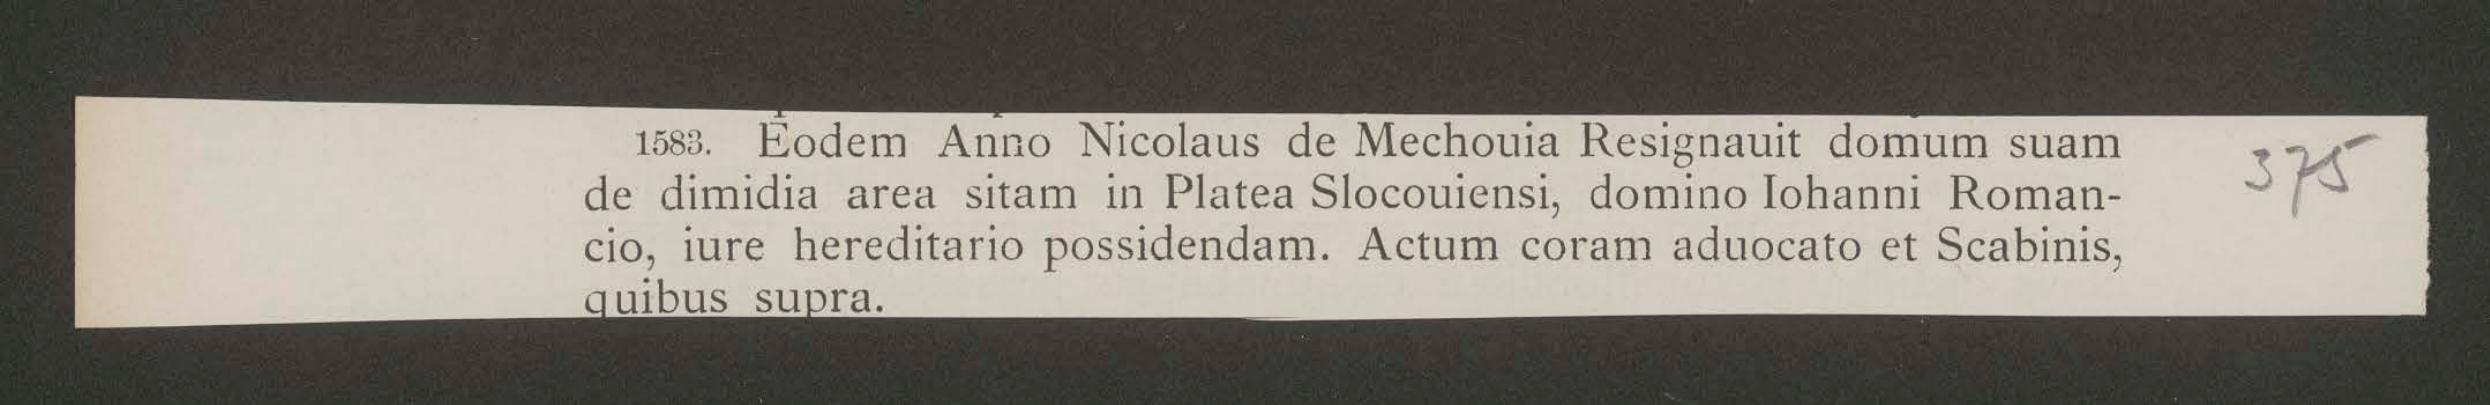 1583. Eodem Anno Nicolaus de Mechouia Resignauit domum suam 375
de dimidia area sitam in Platea Slocouiensi, domino Iohanni Roman-
cio, iure hereditario possidendam. Actum coram aduocato et Scabinis,
quibus supra.